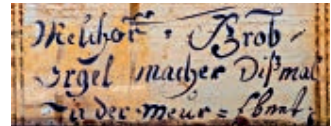 Melchor · Grob
Orgel macher Dißmal
In der Meur =